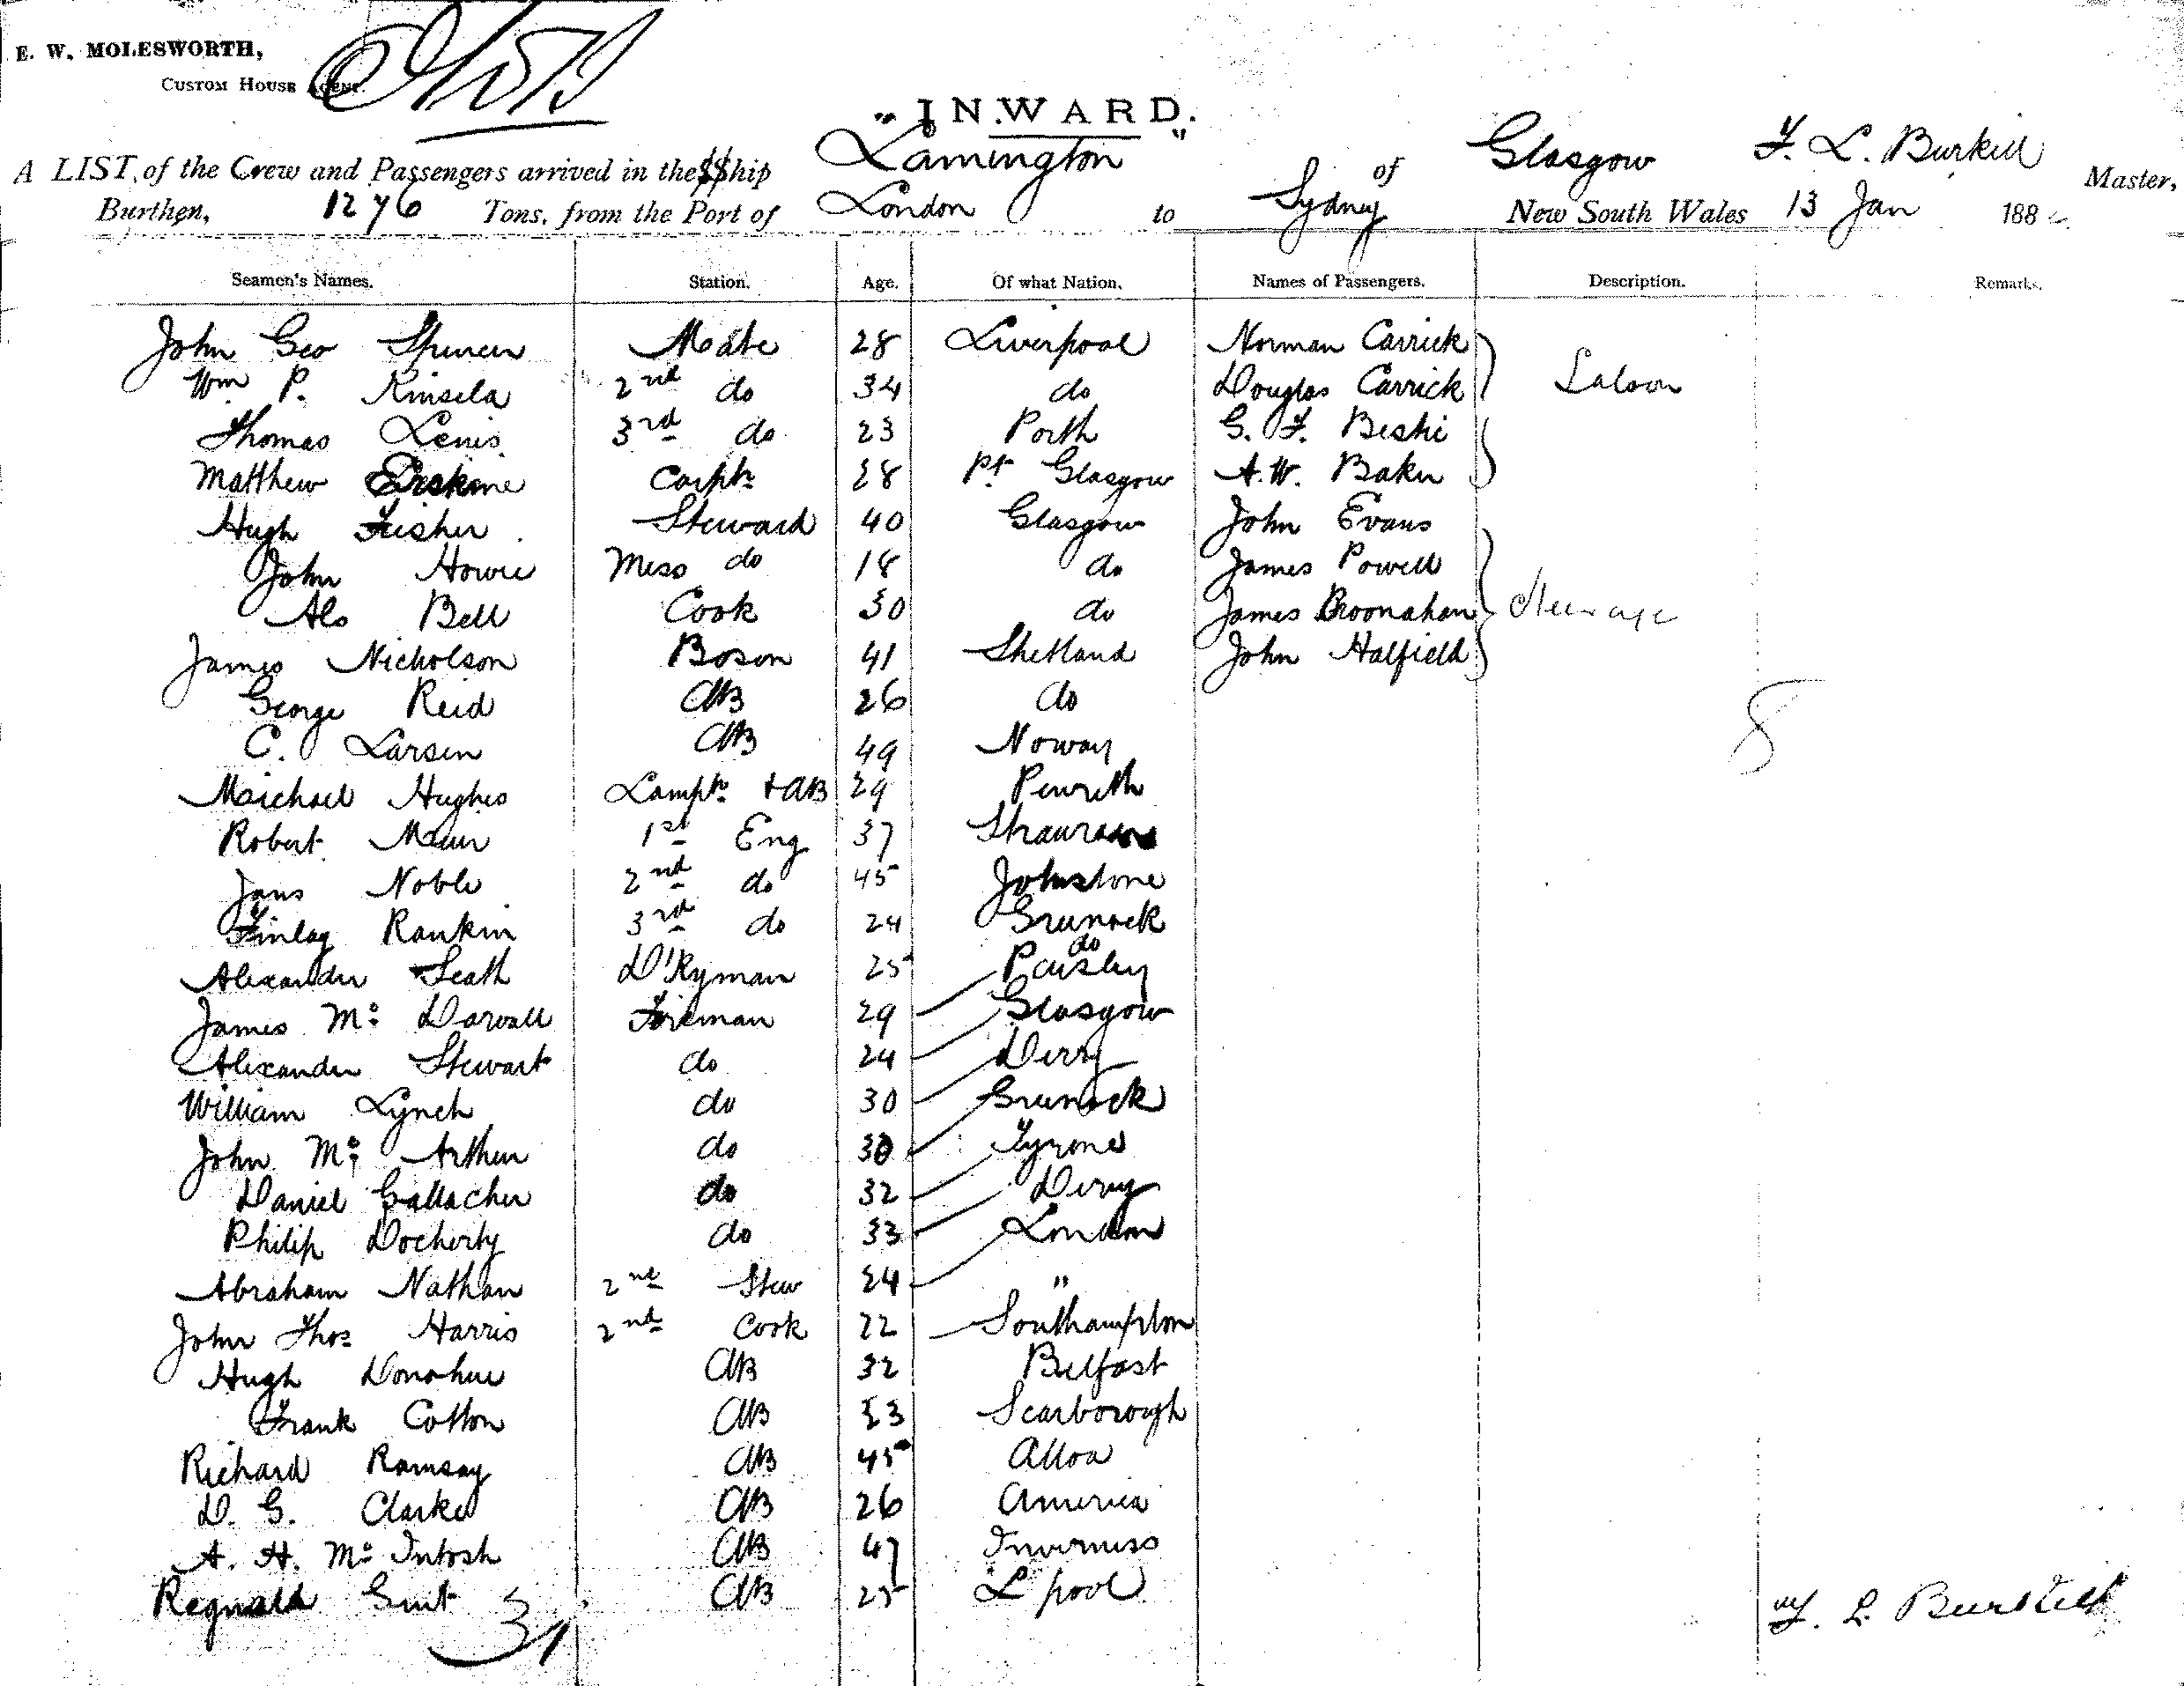 E. W. MOLESWORTH,
CUSTOM HOUSE AGENT.
"INWARD."
A LIST, of the Crew and Passengers arrived in the SShip Lamington of Glasgow F. L. Burkill Master,
Burthen, 1276 Tons, from the Port of London to Sydney New South Wales 13 Jan 188
Seamen's Names. Station. Age. Of what Nation. Names of Passengers. Description. Remarks.
John Geo Spencer Mate 28 Liverpool Norman Carrick
Wm P. Kinsela 2nd do 34 do Douglas Carrick Saloon
Thomas Lewis 3rd do 23 Porth G. F. Beshi
Matthew Erskine Carptr 28 Pt Glasgow A. W. Baker
Hugh Fisher Steward 40 Glasgow John Evans
John Howie Mess do 18 do James Powell
Alx Bell Cook 30 do James Broonahan Steerage
James Nicholson Boson 41 Shetland John Halfield
George Reid AB 26 do
C. Larsen AB 49 Noway 8
Maichael Hughes Lamptr + AB 29 Penrith
Robert Muir 1st Eng 37
Jans Noble 2nd do 45 Johnstone
Finlay Rankin 3rd do 24 Greenock
do
Alexander Seath D'Kyman 25 Paisley
James Mc Darvall Fireman 29 Glasgow
Alexander Stewart do 24 Derry
William Lynch do 30 Greenock
John Mc Arthur do 30 Tyrone
Daniel Gallacher do 32 Derry
Philip Docherty do 33 London
Abraham Nathan 2nd Stew 24 "
John Thos Harris 2nd Cook 22 Southampton
Hugh Donohue AB 32 Belfast
Frank Cotton AB 23 Scarborough
Richard Ramsay AB 45 Alloa
D. G. Clarke AB 26 America
A. H. Mc Intosh AB 47 Inverness
Reginald Guit AB 25 L pool
31 F. L. Burkill